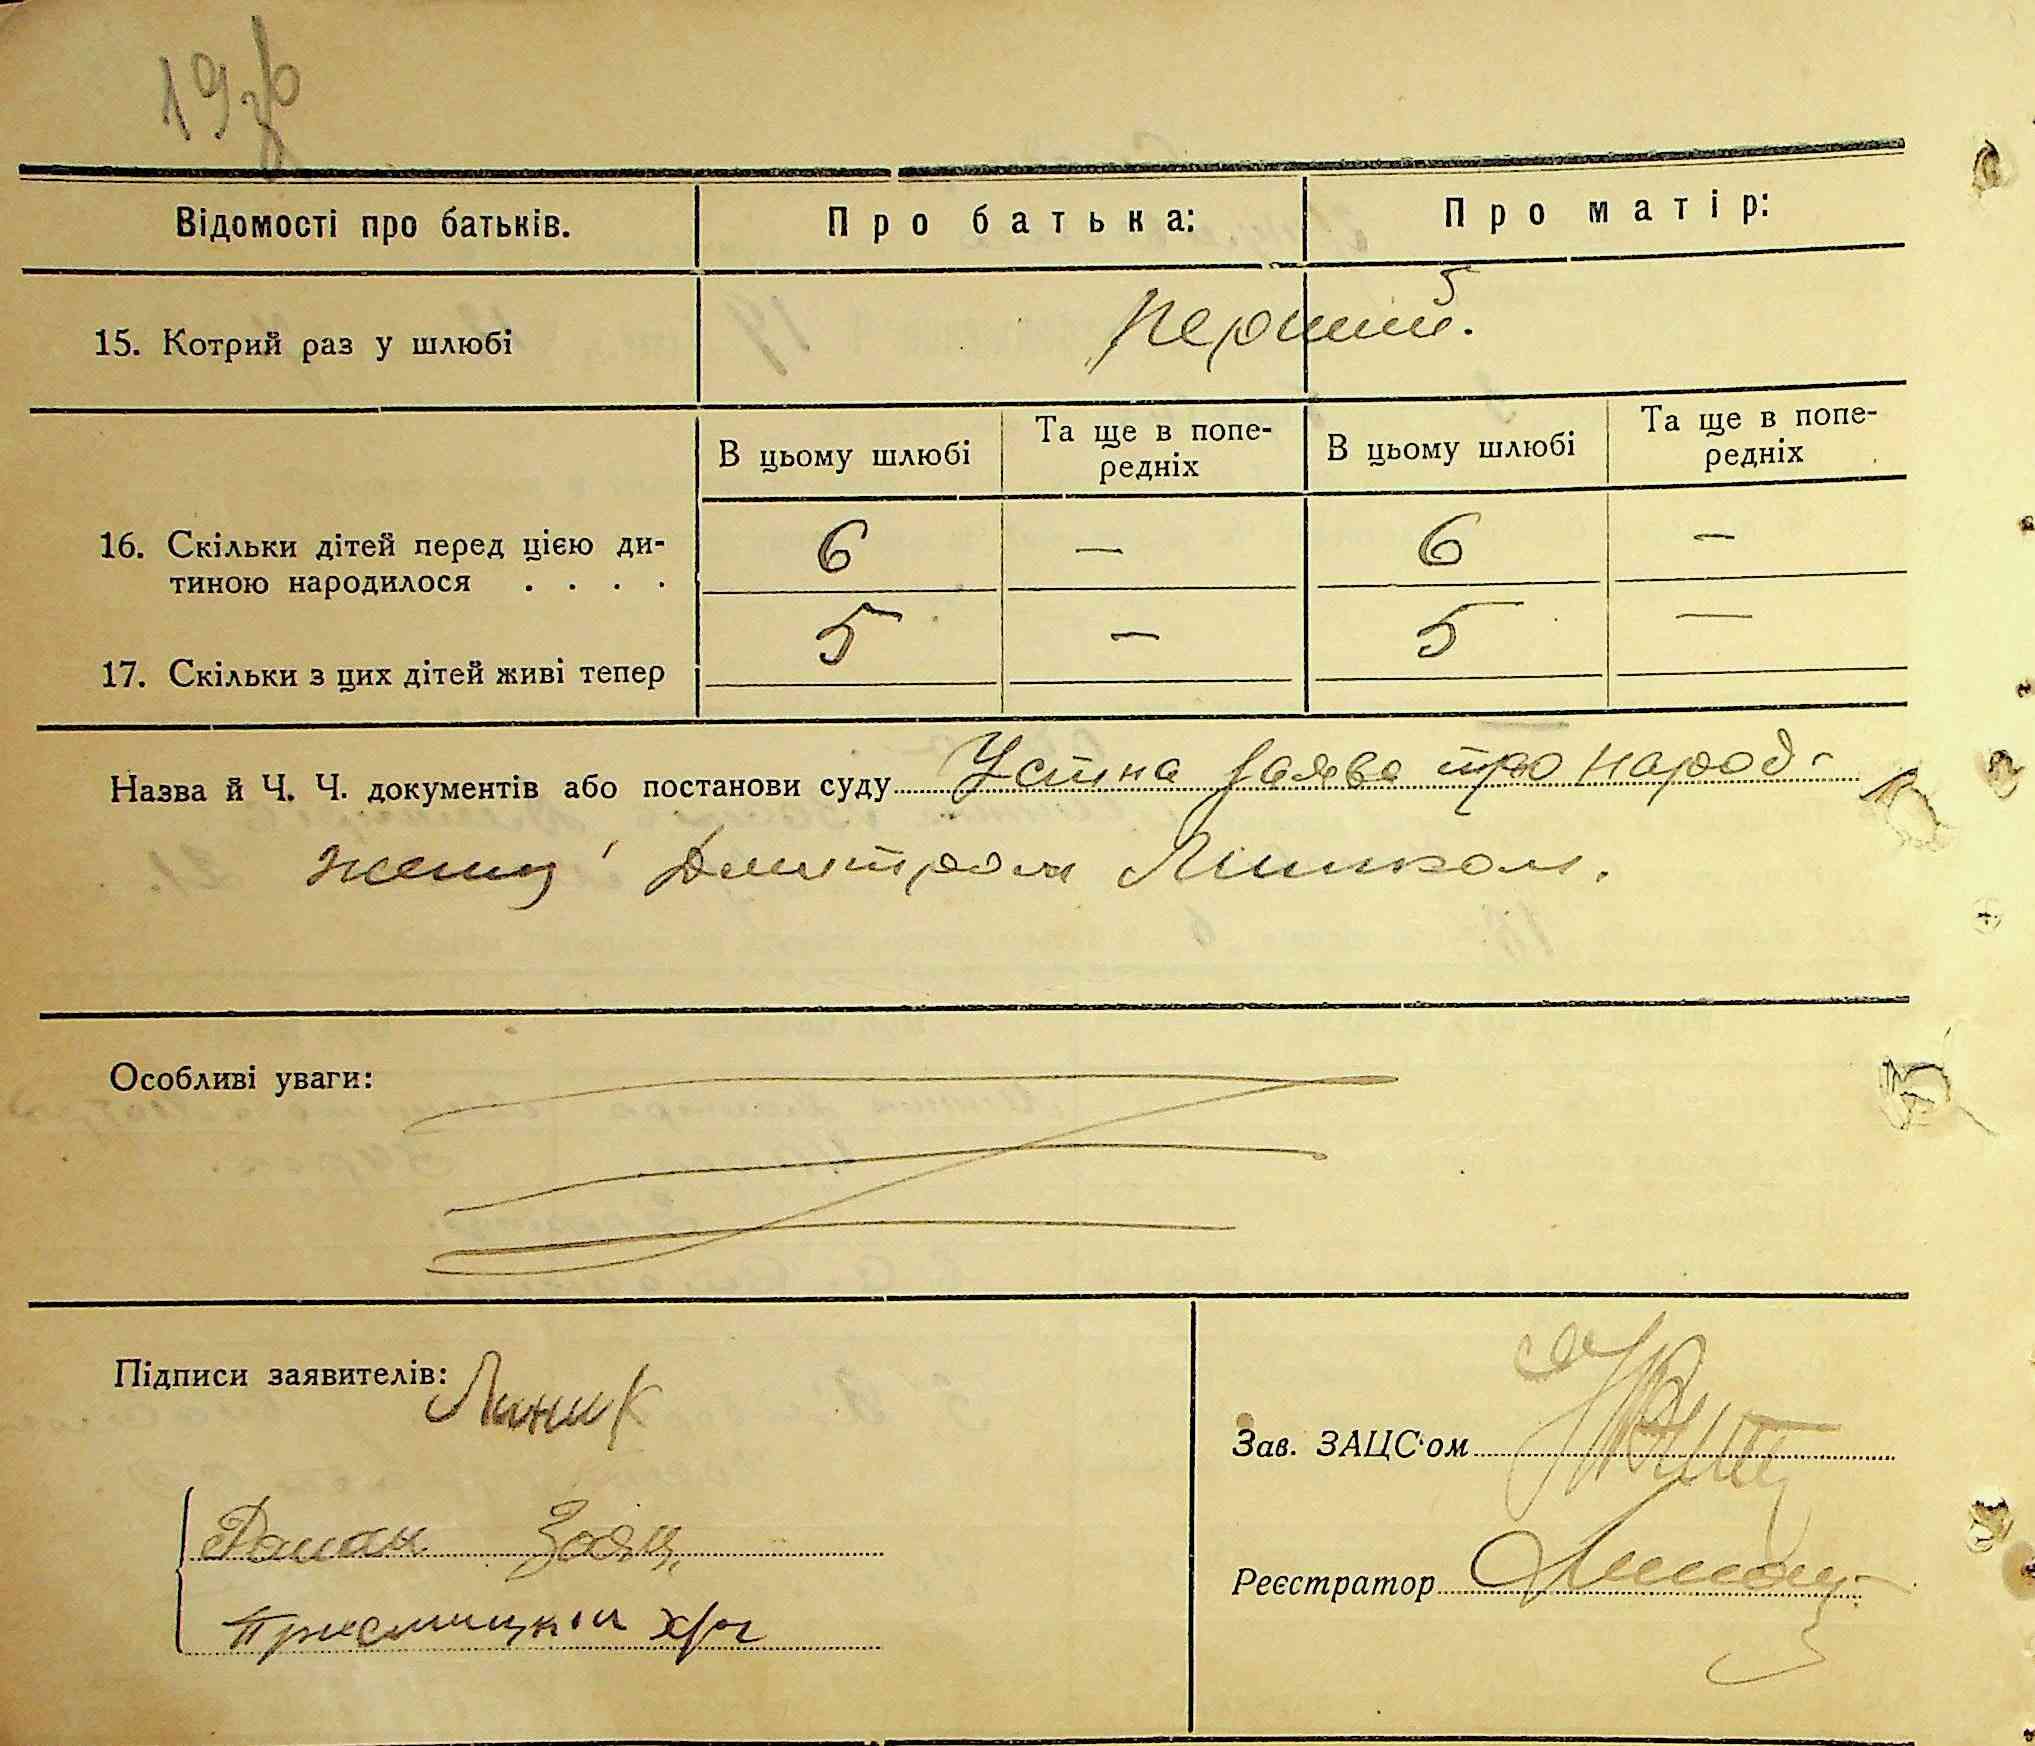 19зв
Відомості про батьків. Про батька: Про матір:
15. Котрий раз у шлюбі перший.
В цьому шлюбі Та ще в попе- В цьому шлюбі Та ще в попе-
редніх редніх
16. Скільки дітей перед цією ди- 6 — 6 —
тиною народилося . . . .
17. Скільки з цих дітей живі тепер 5 — 5 —
Назва й Ч. Ч. документів або постанови суду Устна заява про народ-
жен Дмитром Линком.
Особливі уваги:
Підписи заявителів: Линик
Зав. ЗАЦС'ом
Роман Заяц
Реєстратор